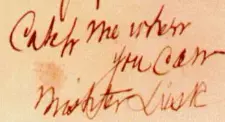 Catch me when
you can
Mishter Lusk